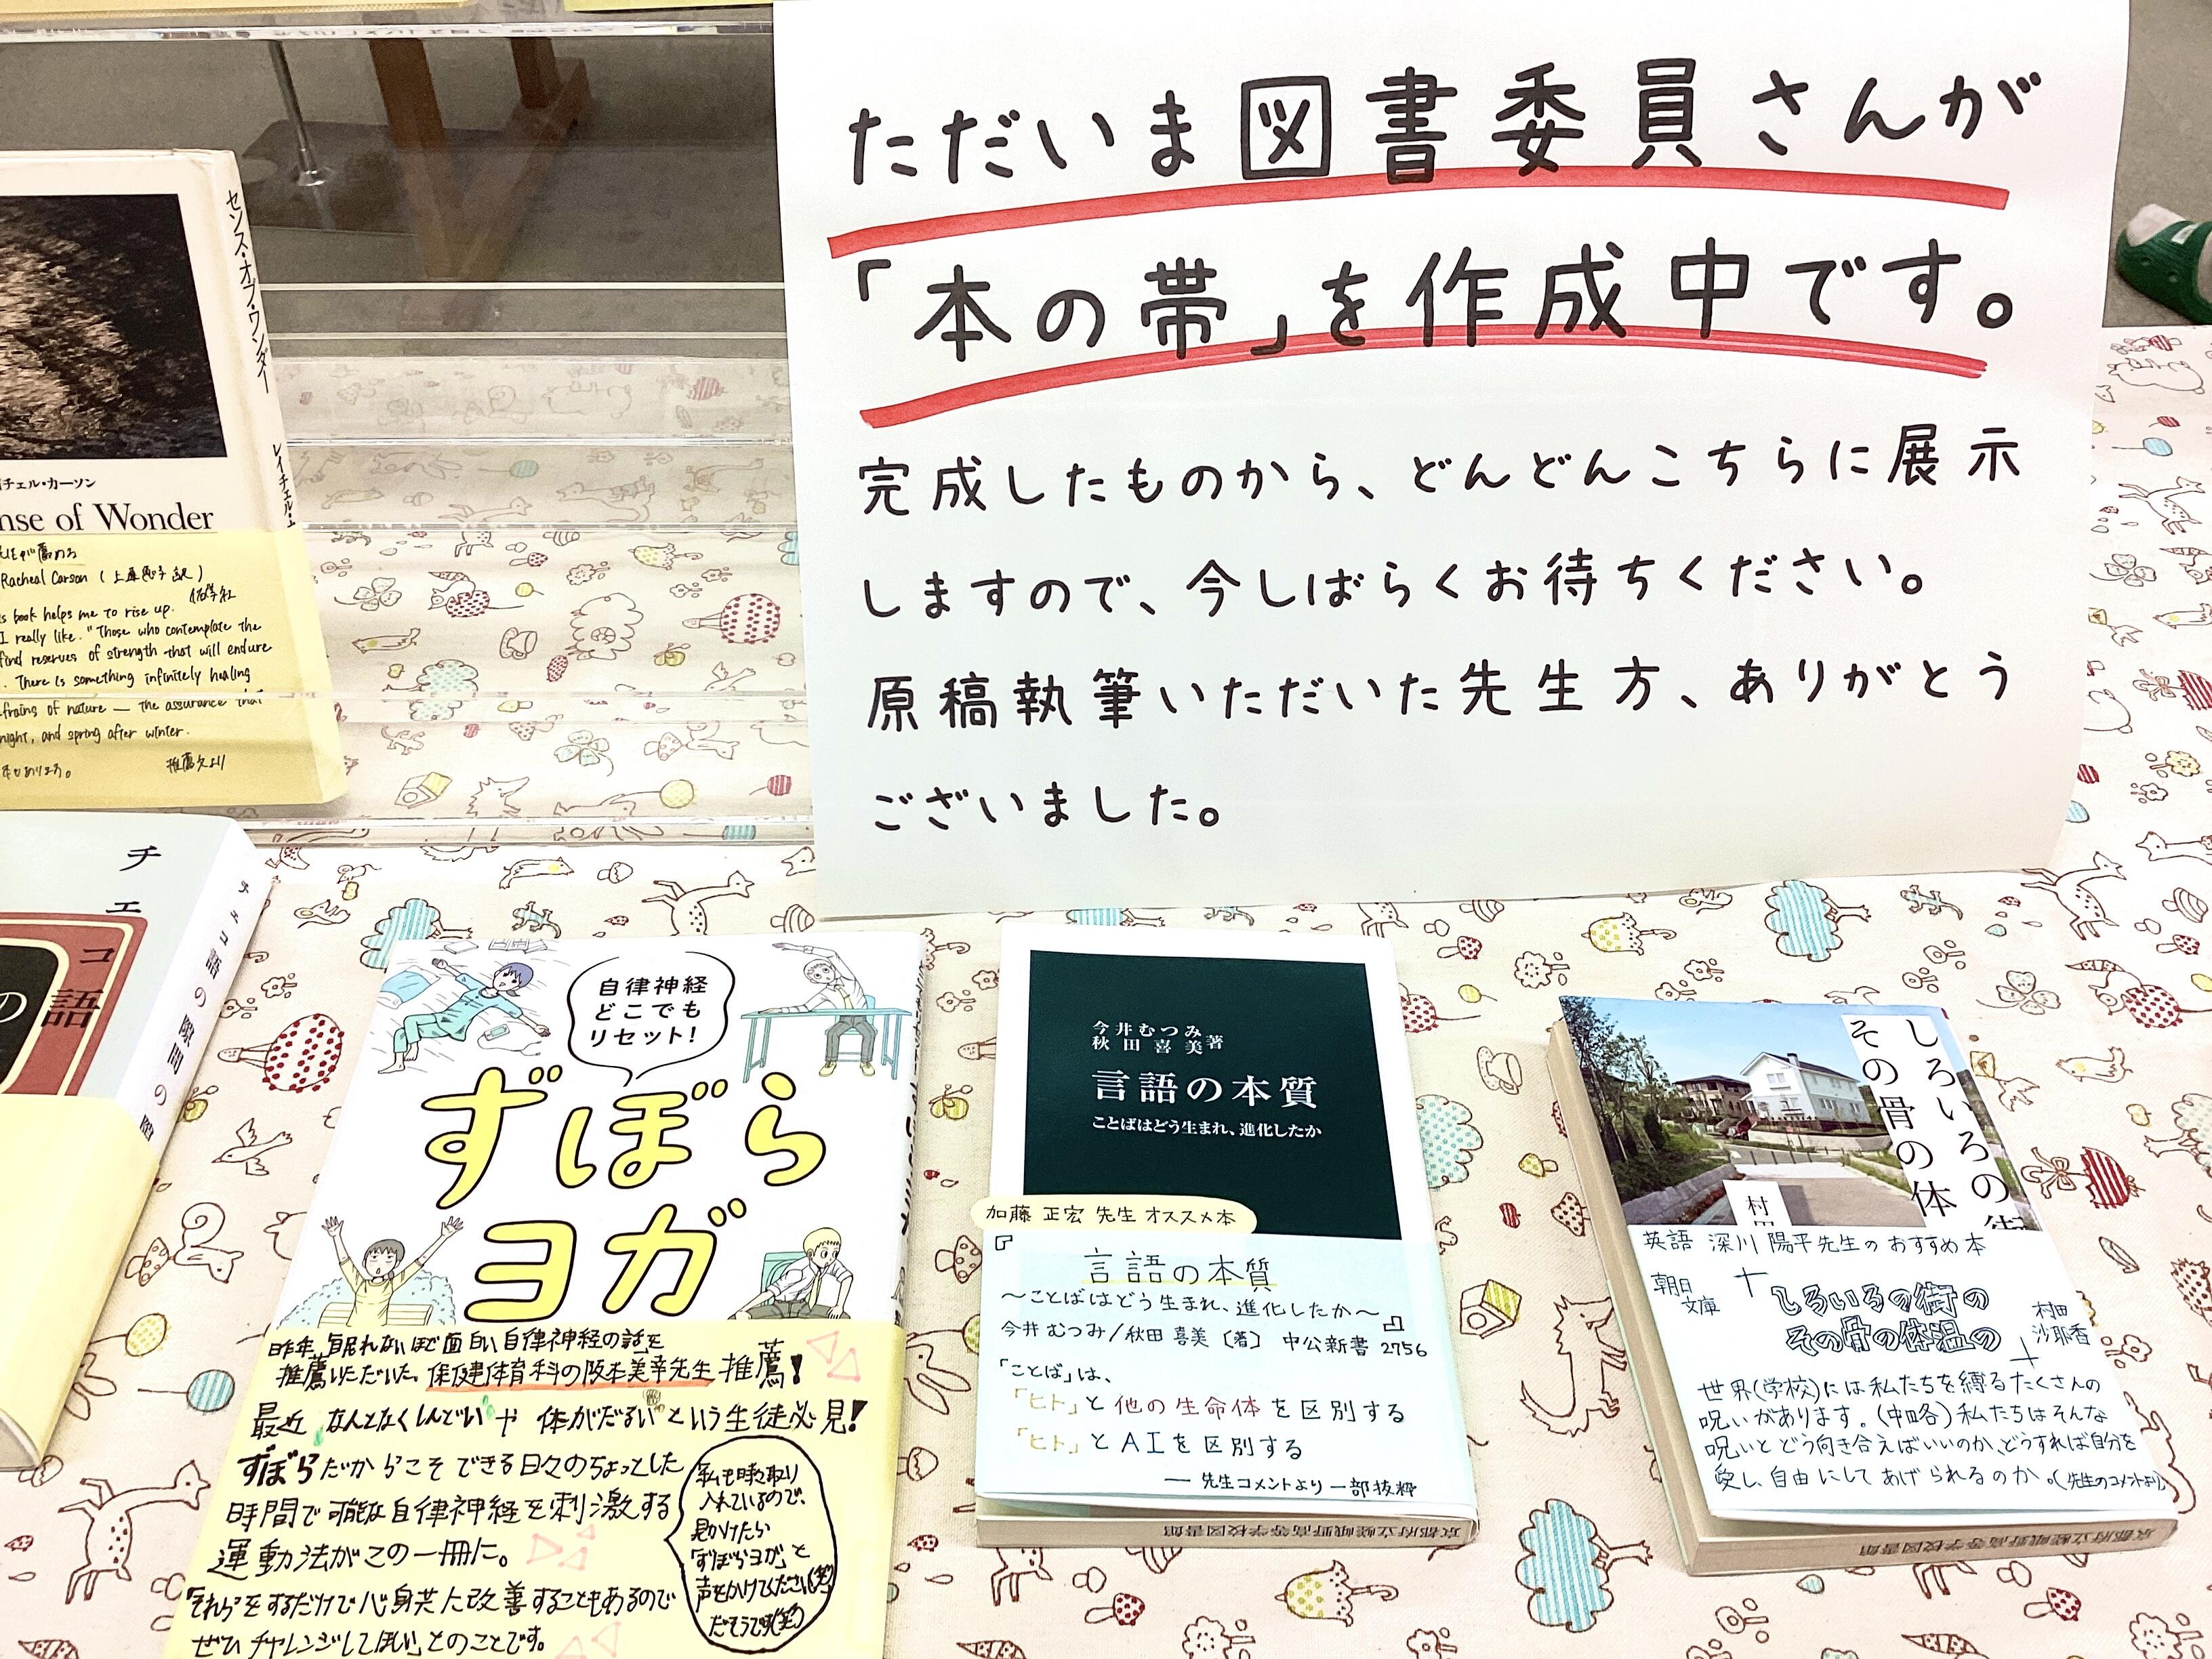 ただいま図書委員さんが
「本の帯」を作成中です。
完成したものから、どんどんこちらに展示
しますので、今しばらくお待ちください。
原稿執筆いただいた先生方、ありがとう
ございました。
センス・オブ・ワンダー
チェル・カーソン
nse of Wonder
が薦める
Racheal Carson (上遠恵子 訳)
s book helps me to rise up.
I really like. "Those who contemplate the
find reserves of strength that will endure
. There is something infinitely healing
frains of nature — the assurance that
night, and spring after winter.
推薦文より
チェコ語の
チェコ語の隙間
自律神経
どこでも
リセット!
ずぼら
ヨガ
昨年、「眠れないほど面白い自律神経の話」を
推薦いただいた、保健体育科の阪本美幸先生 推薦!
最近、なんとなくしんどい や 体がだるい という生徒必見!
ずぼらだからこそできる日々のちょっとした
時間で可能な自律神経を刺激する
運動法がこの一冊に。
「それらをするだけで心身共に改善することもあるので
ぜひチャレンジしてほしい」とのことです。
私も時々取り
入れているので、
見かけたら
「ずぼらヨガ」と
声をかけてください(笑)
だそうです(笑)
今井むつみ
秋田喜美 著
言語の本質
ことばはどう生まれ、進化したか
加藤 正宏 先生 オススメ本
『言語の本質
〜ことばはどう生まれ、進化したか〜』
今井むつみ/秋田喜美〔著〕 中公新書 2756
「ことば」は、
「ヒト」と他の生命体を区別する
「ヒト」とAIを区別する
— 先生コメントより一部抜粋
京都府立嵯峨野高等学校図書館
しろいろの街
その骨の体
村田
英語 深川 陽平先生のおすすめ本
朝日
文庫
しろいろの街の
その骨の体温の
村田
沙耶香
世界(学校)には私たちを縛るたくさんの
呪いがあります。(中略)私たちはそんな
呪いとどう向き合えばいいのか、どうすれば自分を
愛し、自由にしてあげられるのか。(先生のコメントより)
京都府立嵯峨野高等学校図書館